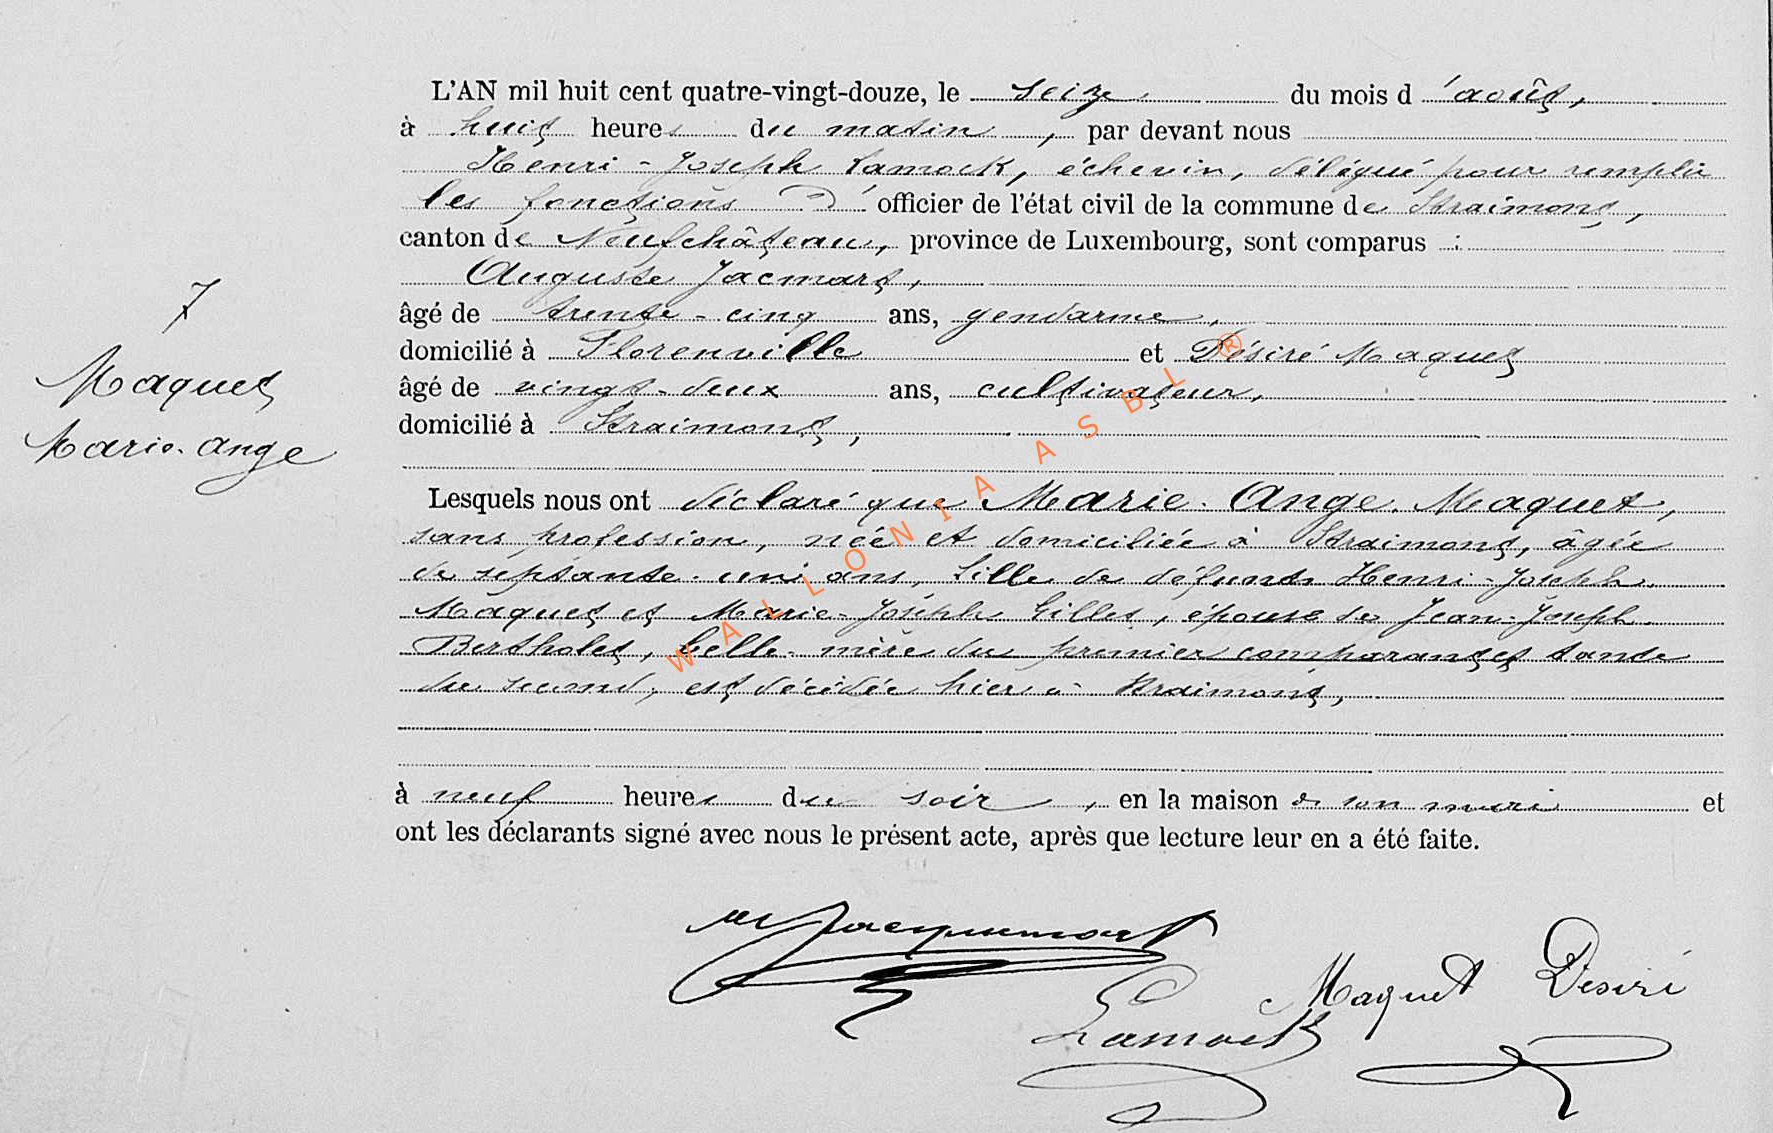 L'AN mil huit cent quatre-vingt-douze, le seize du mois d'août,
à huit heures du matin, par devant nous
Henri-Joseph Lamock, échevin, délégué pour remplir
les fonctions D'officier de l'état civil de la commune de Straimont,
canton de Neufchâteau, province de Luxembourg, sont comparus :
Auguste Jacmart,
7
âgé de trente-cinq ans, gendarme,
domicilié à Florenville et Désiré Maquet
Maquet
âgé de vingt-deux ans, cultivateur,
domicilié à Straimont,
Marie-Ange
Lesquels nous ont déclaré que Marie-Ange Maquet,
sans profession, née et domiciliée à Straimont, âgée
de septante-un ans, fille de défunts Henri-Joseph
Maquet et Marie-Josèphe Gilles, épouse de Jean-Joseph
Bertholet, belle-mère du premier comparant et tante
du second, est décédée hier à Straimont,
à neuf heures du soir, en la maison de son mari et
ont les déclarants signé avec nous le présent acte, après que lecture leur en a été faite.
Jacquemart
Maquet Désiré
Lamock
WALLONIA ASBL ®